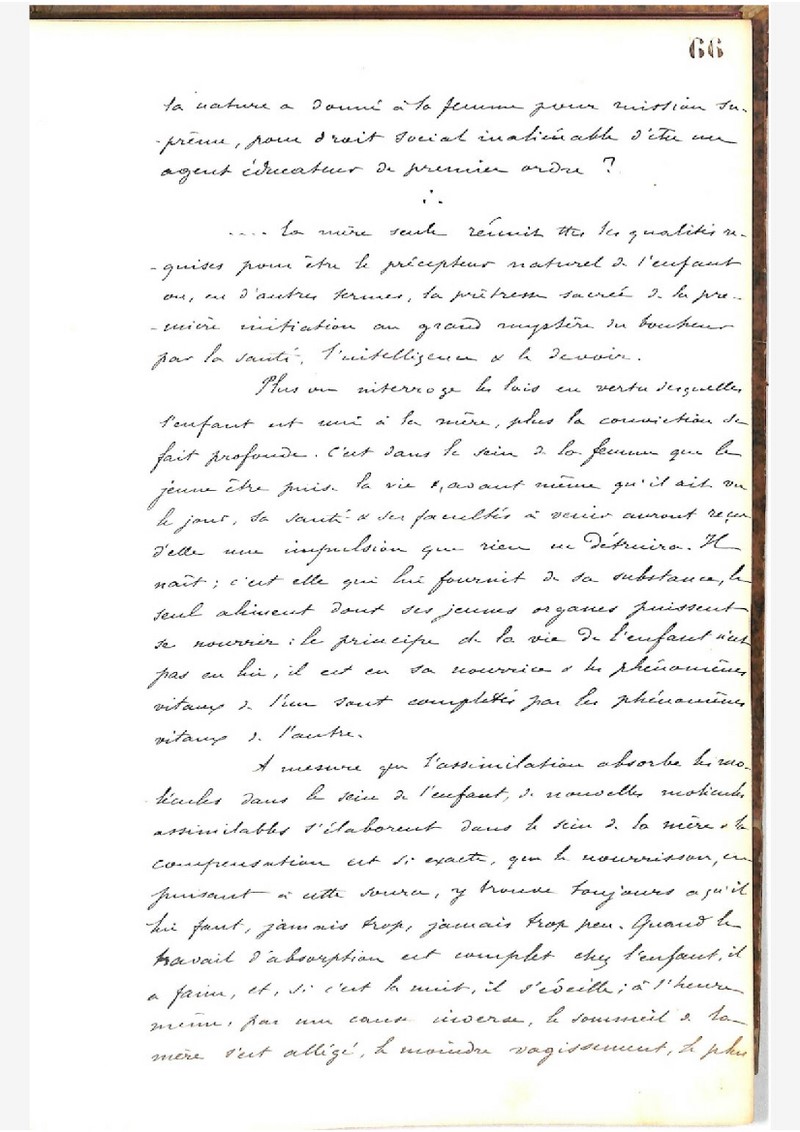 66
la nature a donné à la femme pour mission su-
-prême, pour droit social inaliénable d'être un
agent éducateur de premier ordre ?
∴
.... La mère seule réunit ttes les qualités re-
-quises pour être le précepteur naturel de l'enfant
ou, en d'autres termes, la prêtresse sacrée de la pre-
-mière initiation au grand mystère du bonheur
par la santé, l'intelligence & le devoir.
Plus on interroge les lois en vertu desquelles
l'enfant est uni à la mère, plus la conviction se
fait profonde. C'est dans le sein de la femme que le
jeune être puise la vie &, avant même qu'il ait vu
le jour, sa santé & ses facultés à venir auront reçu
d'elle une impulsion que rien ne détruira. Il
naît ; c'est elle qui lui fournit de sa substance, le
seul aliment dont ses jeunes organes puissent
se nourrir : le principe de la vie de l'enfant n'est
pas en lui, il est en sa nourrice & les phénomènes
vitaux de l'un sont complétés par les phénomènes
vitaux de l'autre.
A mesure que l'assimilation absorbe les mo-
lécules dans le sein de l'enfant, de nouvelles molécules
assimilables s'élaborent dans le sein de la mère & la
compensation est si exacte, que le nourrisson, en
puisant à cette source, y trouve toujours ce qu'il
lui faut, jamais trop, jamais trop peu. Quand le
travail d'absorption est complet chez l'enfant, il
a faim, et, si c'est la nuit, il s'éveille ; à l'heure
même, par une cause inverse, le sommeil de la
mère s'est allégé, le moindre vagissement, le plus